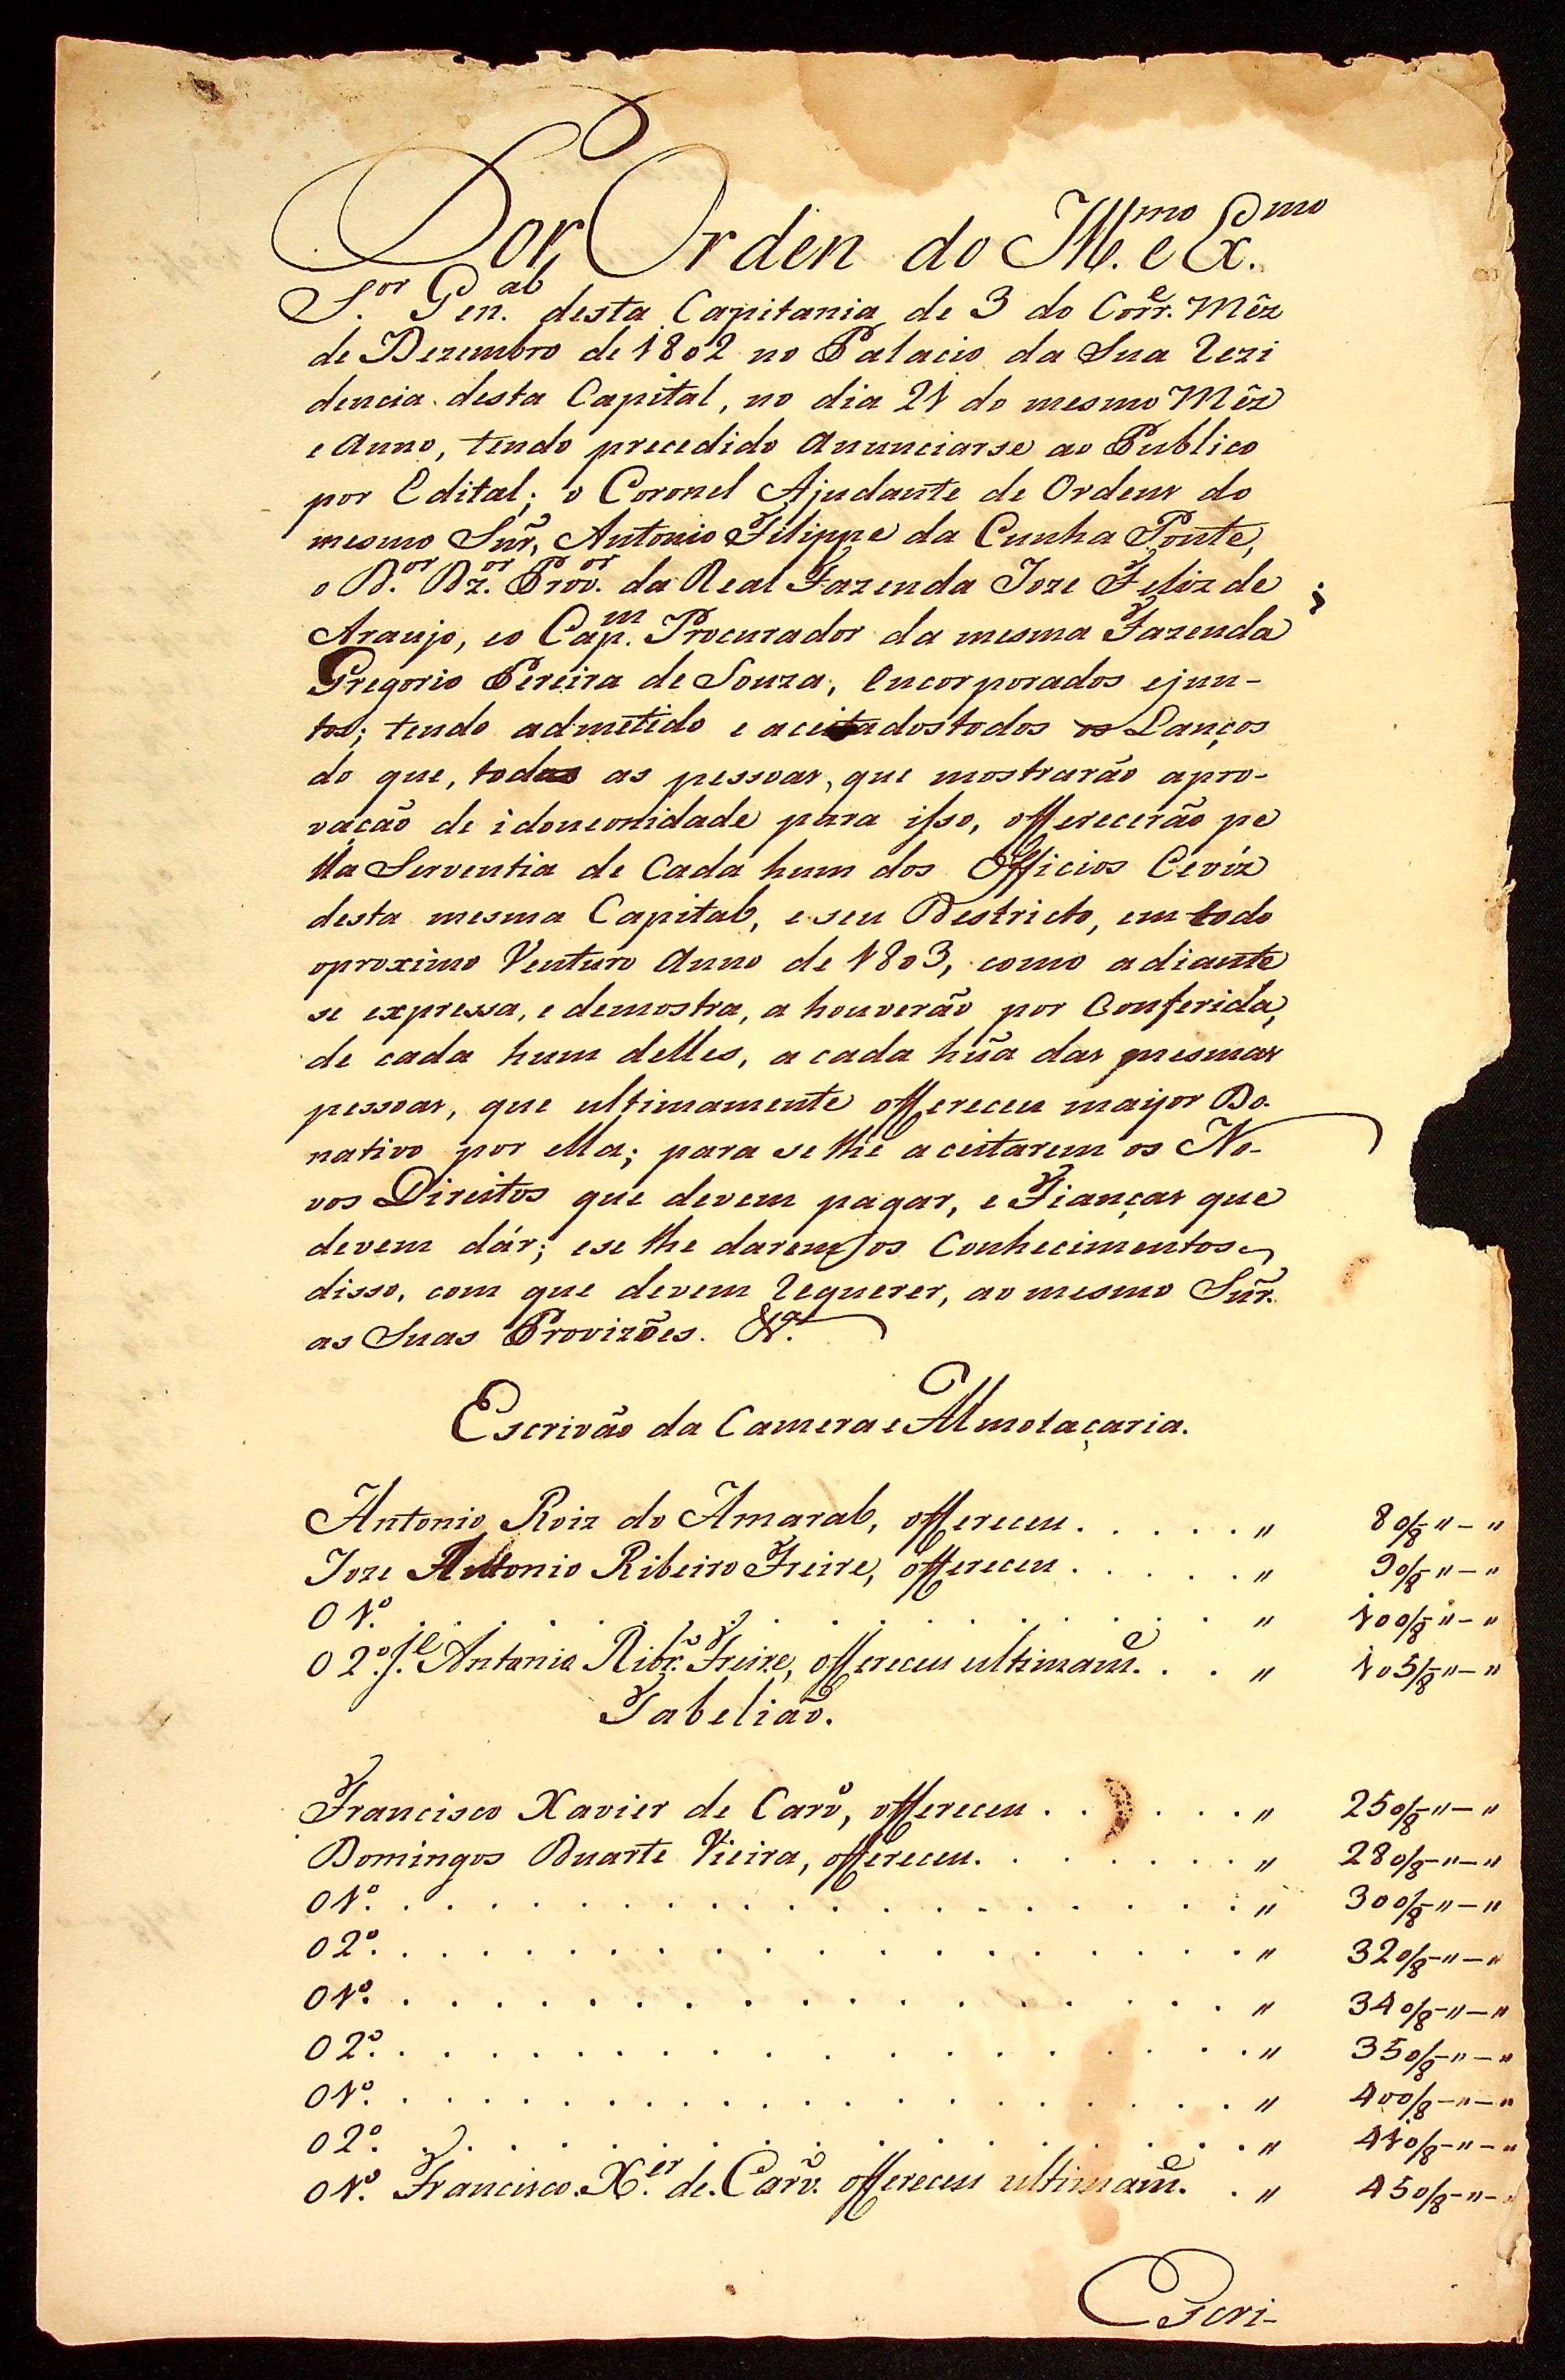 Por Orden do Ill.mo e Ex.mo
S.or Gen.al desta Capitania de 3 do Corr.e Mêz
de Dezembro de 1802 no Palacio da Sua Rezi
dencia desta Capital, no dia 21 do mesmo Mêz
e Anno, tendo precedido Anunciarse ao Publico
por Edital; o Coronel Ajudante de Ordens do
mesmo Snr̃, Antonio Filippe da Cunha Ponte,
o D.or Dz.or Prov.or da Real Fazenda Joze Feliz de
Araujo, eo Cap.m Procurador da mesma Fazenda
Gregorio Pereira de Souza, Encorporados ejun-
tos; tendo admetido e aceitados todos os Lanços
do que, todas as pessoas, que mostrarão apro-
vação de idoneonidade para isso, offerecerão pe
lla Serventia de Cada hum dos Officios Cevíz
desta mesma Capital, e seu Destricto, em todo
oproximo Venturo Anno de 1803, como adiante
se expressa, e demostra, a houverão por Conferida,
de cada hum delles, a cada hũa das mesmas
pessoas, que ultimamente offereceu mayor Do-
nativo por ella; para se lhe aceitarem os No-
vos Direitos que devem pagar, e Fianças que
devem dár; ese lhe darem os Conhecimentos
disso, com que devem Requerer, ao mesmo Sũr.
as Suas Provizões. &.a
Escrivão da Camera e Almotaçaria.
Antonio Roiz do Amaral, offereceu . . . . . " 80/8 " — "
Joze Antonio Ribeiro Freire, offereceu . . . . . " 90/8 " — "
O 1.º . . . . . . . . . . . . . . . " 100/8 " — "
O 2.º J.e Antonio Ribr.o Freire, offereceu ultimam.e . . " 105/8 " — "
Tabelião.
Francisco Xavier de Carv.o, offereceu . . . . . . " 250/8 — " — "
Domingos Duarte Vieira, offereceu . . . . . . . " 280/8 — " — "
O 1.º . . . . . . . . . . . . . . . . " 300/8 — " — "
O 2.º . . . . . . . . . . . . . . . . " 320/8 — " — "
O 1.º . . . . . . . . . . . . . . . . " 340/8 — " — "
O 2.º . . . . . . . . . . . . . . . . " 350/8 — " — "
O 1.º . . . . . . . . . . . . . . . . " 400/8 — " — "
O 2.º . . . . . . . . . . . . . . . . " 410/8 — " — "
O 1.º Francisco X.er de Carv.o offereceu ultimam.e . " 450/8 — " — "
Escri-